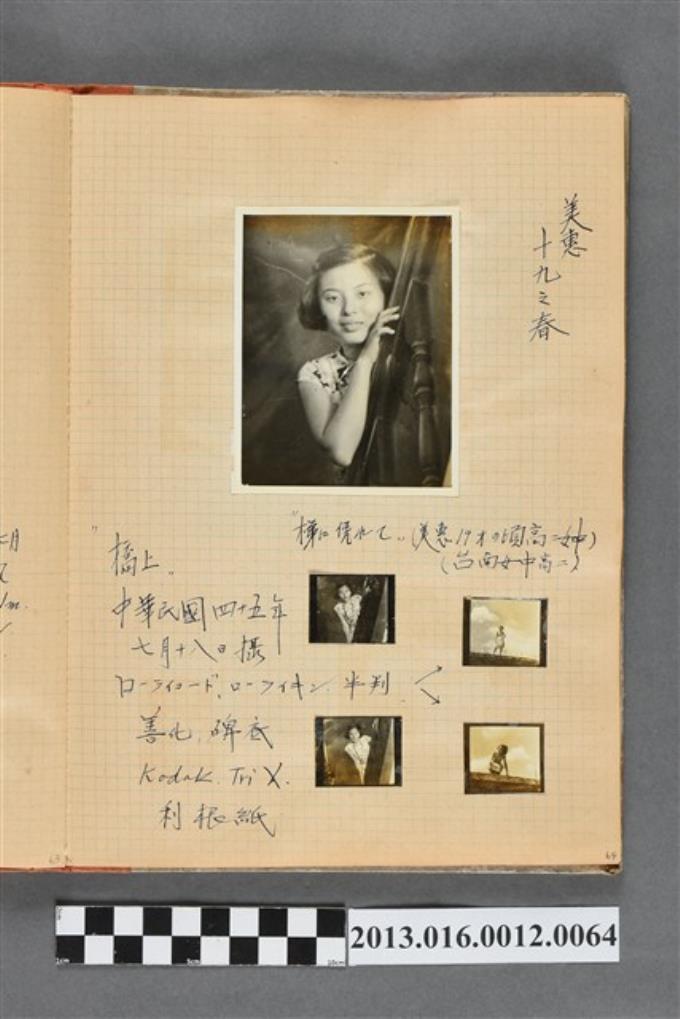 美惠
十九之春
"梯に凭れて" (美惠19才の頃高二女中)
(台南女中高二)
"橋上"
中華民國四十五年
七月十八日攝
ローライコード、ローライキン、半判
善化,碑底
Kodak. Tri X.
利根紙
月
て
/m.
63
64
1cm 5cm 10cm
2013.016.0012.0064